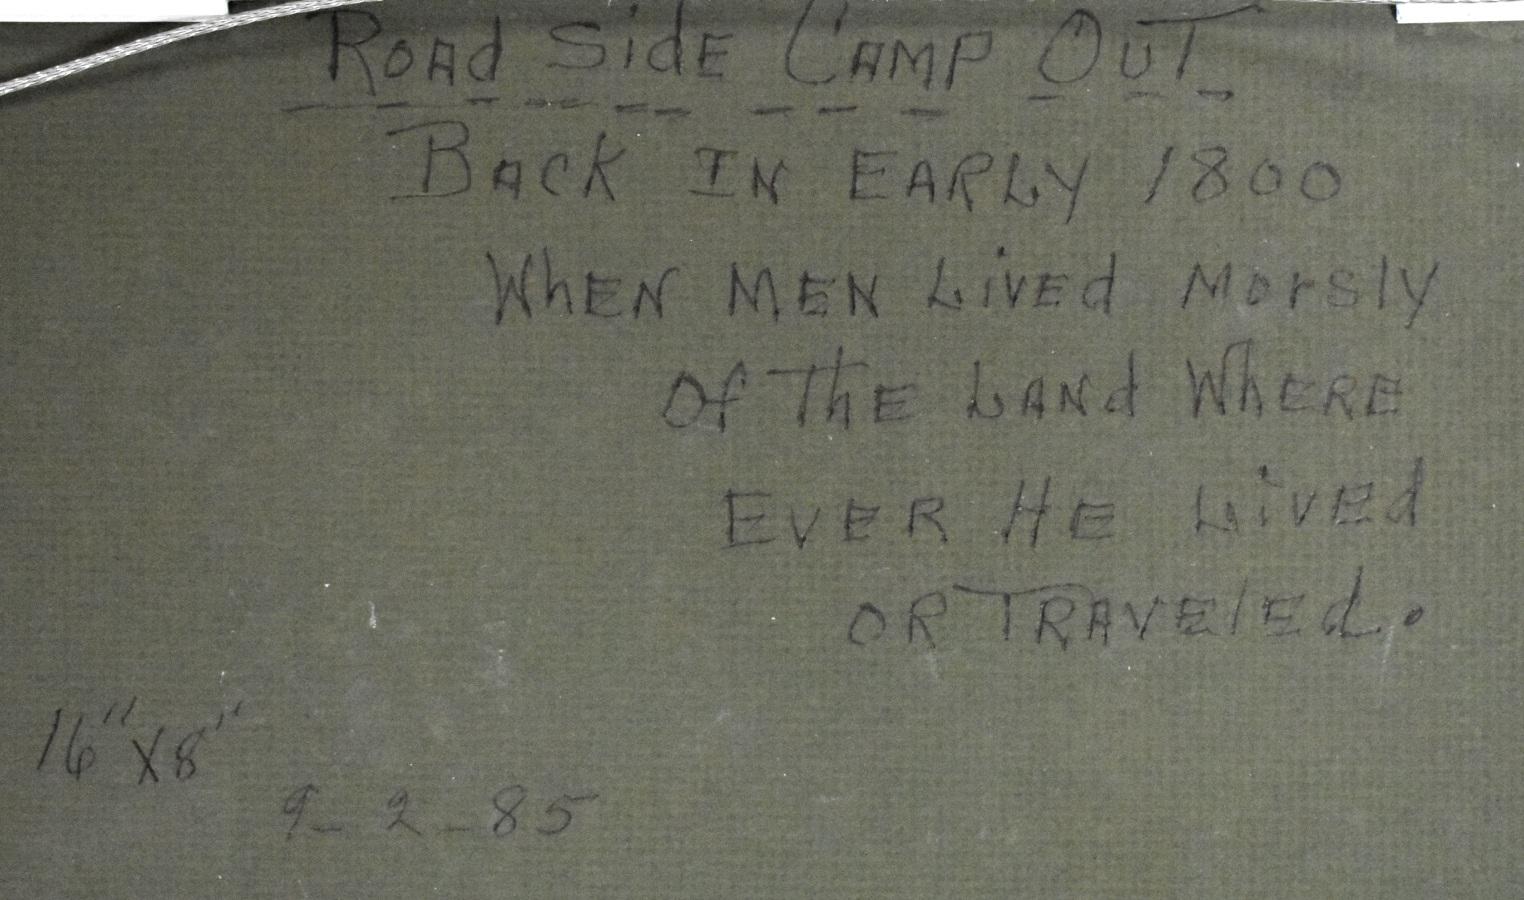 Road Side Camp Out
Back In Early 1800
When Men Lived Morsly
Of The Land Where
Ever He Lived
or Traveled.
16" x 8"
9-2-85